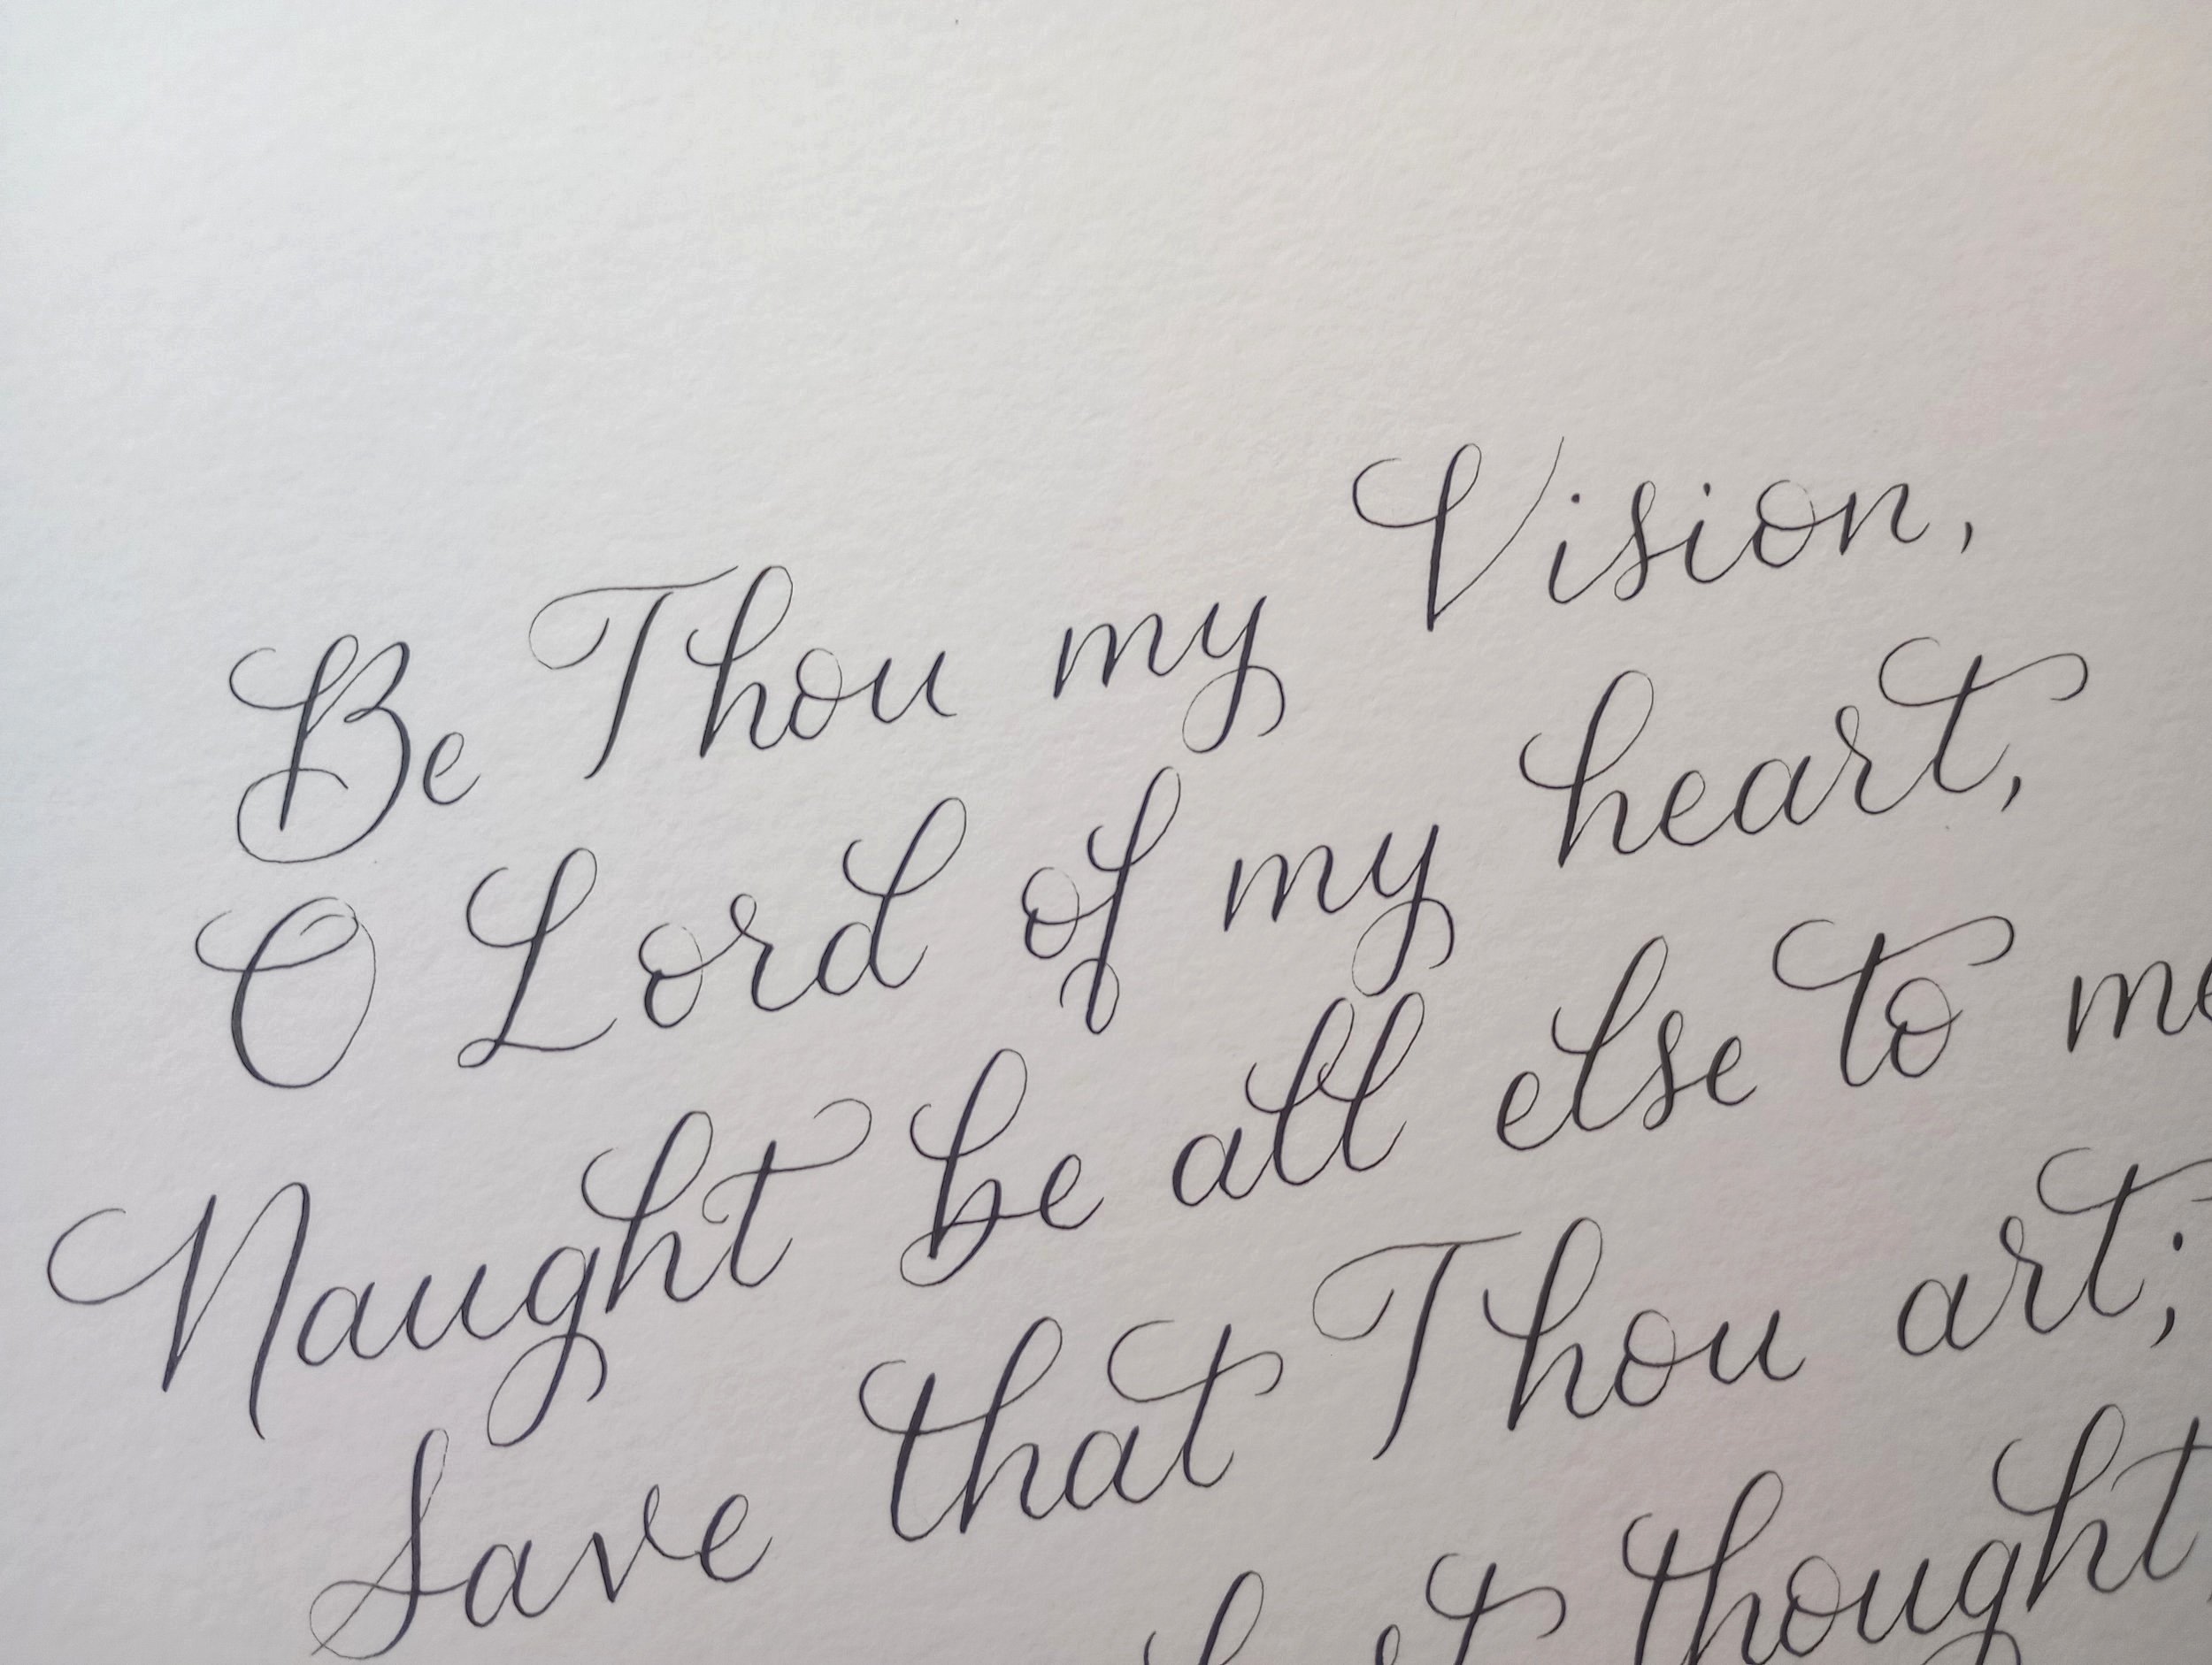 Be Thou my Vision,
O Lord of my heart,
Naught be all else to me
Save that Thou art;
thought